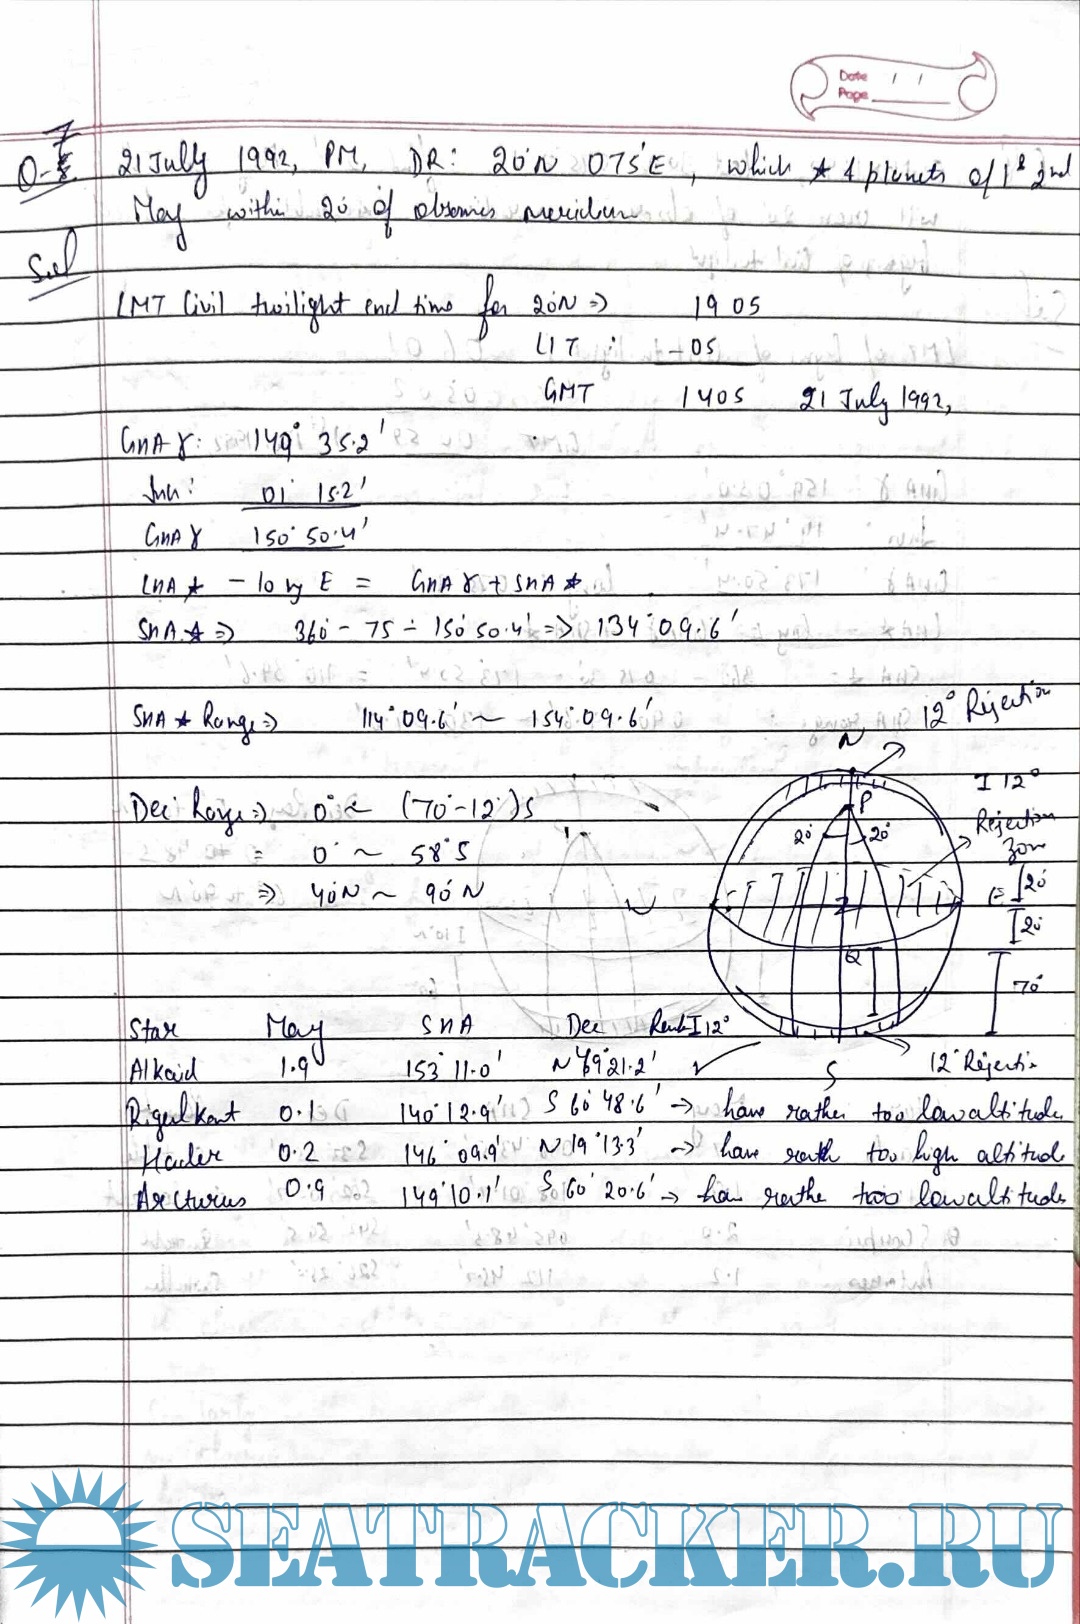 Date / /
Page
Q-7. 21 July 1992, PM, DR: 20°N 075°E, which ★ & planets of 1st 2nd
May within 20° of observers meridian
Sol
LMT Civil twilight end time for 20°N ⇒ 19 05
LIT : -05
GMT 1405 21 July 1992,
GHA ♈: 149° 35.2'
Inc: 01° 15.2'
GHA ♈ 150° 50.4'
LHA ★ - long E = GHA ♈ + SHA ★
SHA ★ ⇒ 360 - 75 - 150° 50.4' ⇒ 134° 09.6'
SHA ★ Range ⇒ 114° 09.6' ~ 154° 09.6'
12° Rejection
N
I 12°
Dec Range ⇒ 0° ~ (70°-12°)S
P
20° 20°
Rejection
Zone
= 0° ~ 58°S
⇒ 40°N ~ 90°N
W Z E
20°
20°
Q
70°
Star May SHA Dec I 12°
Alkaid 1.9 153° 11.0' N 49° 21.2' ✓ S 12° Rejecti
Rigel Kent 0.1 140° 12.9' S 60° 48.6' → have rather too low altitude
Hadar 0.2 146° 09.9' N 19° 13.3' → have rath too high altitud
Arcturus 0.9 149° 10.1' S 60° 20.6' → hav rathe too low altitude
SEATRACKER.RU